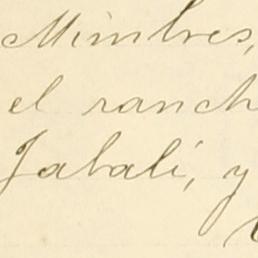 Mimbres,
el ranch
Jabalí, y